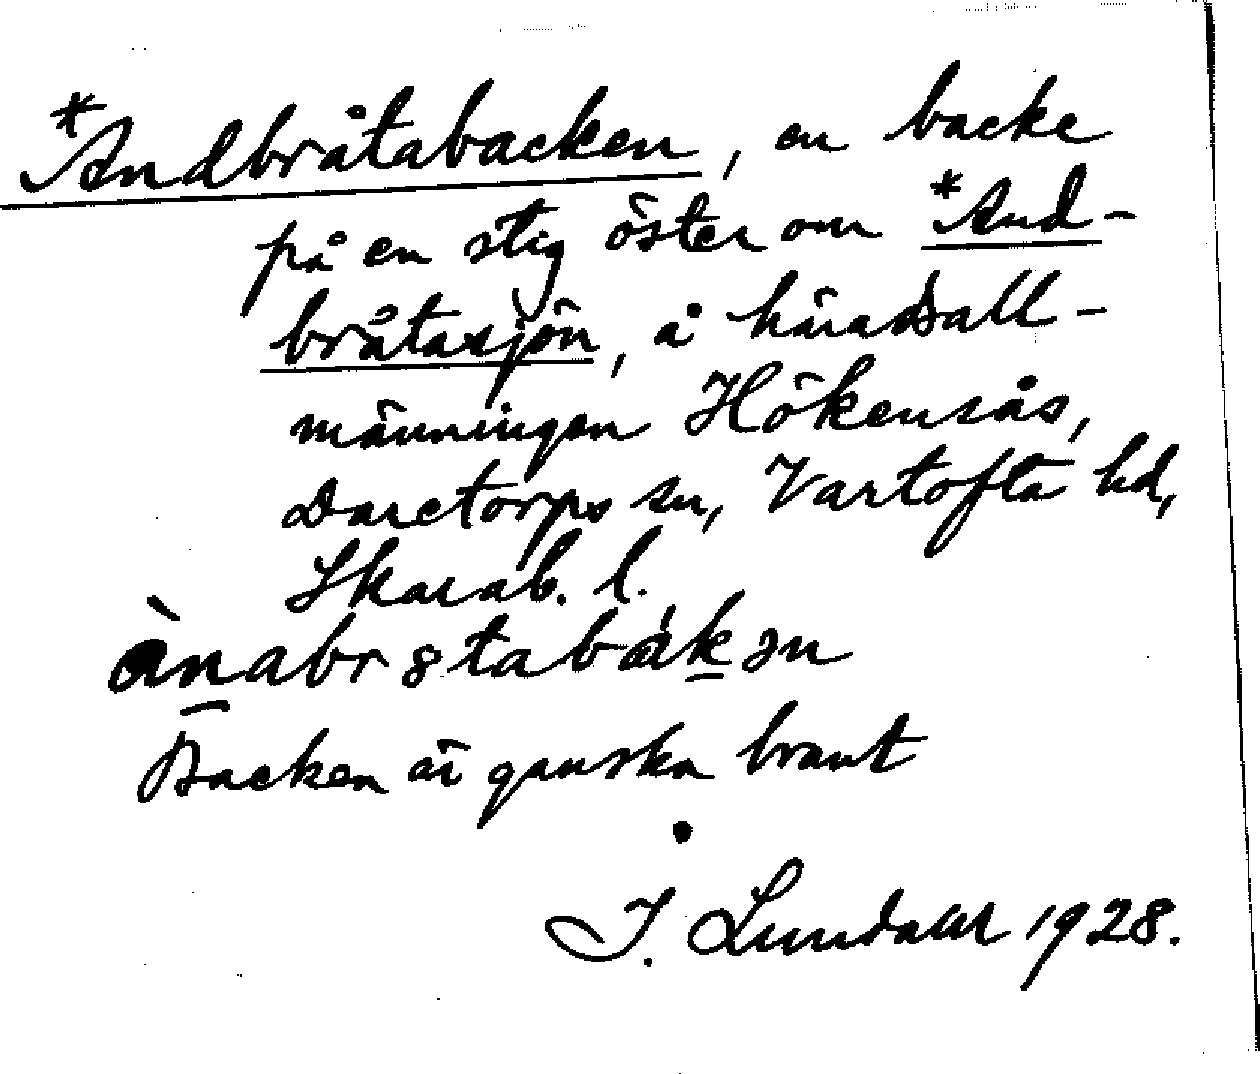 *Andbråtabacken, en backe
på en stig öster om *And-
bråtasjön, å häradsall-
männingen Hökensås,
Daretorps sn, Vartofta hd,
Skarab. l.
ànabr8tabákən
Backen är ganska brant
.
I. Lundahl 1928.